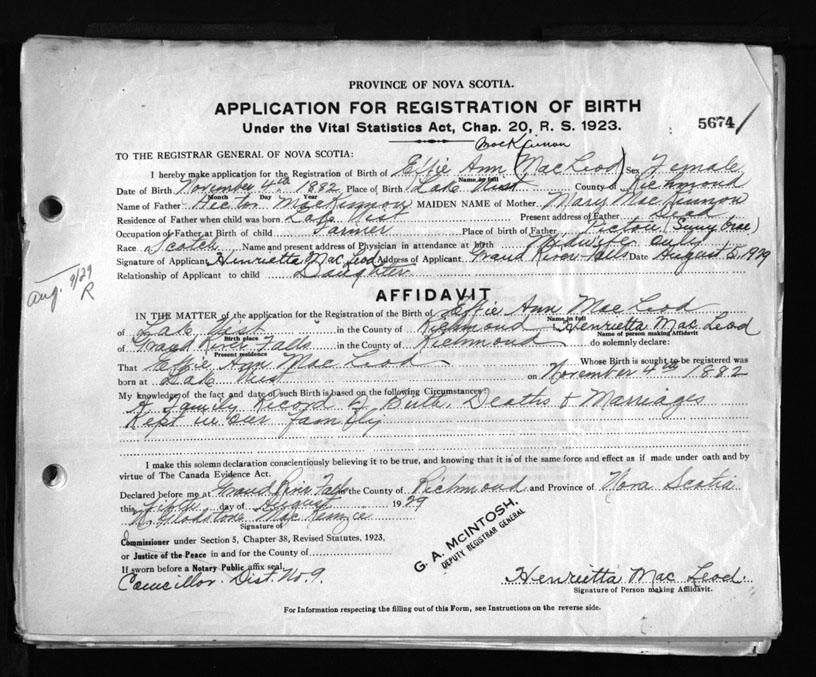 PROVINCE OF NOVA SCOTIA.
APPLICATION FOR REGISTRATION OF BIRTH
5674
Under the Vital Statistics Act, Chap. 20, R. S. 1923.
MacKinnon
TO THE REGISTRAR GENERAL OF NOVA SCOTIA:
I hereby make application for the Registration of Birth of Effie Ann (MacLeod) Sex Female
Name in full
Date of Birth November 4th 1882 Place of Birth Lake Uist County of Richmond
Month Day Year
Name of Father Hector MacKinnon MAIDEN NAME of Mother Mary MacKinnon
Residence of Father when child was born Lake Uist Present address of Father Dead
Occupation of Father at Birth of child Farmer Place of birth of Father Pictou (Sunny brae)
Race Scotch Name and present address of Physician in attendance at birth Midwife only
Signature of Applicant Henrietta MacLeod Address of Applicant Grand River Falls Date August 5, 1929
Relationship of Applicant to child Daughter
Aug. 9/29
R
AFFIDAVIT
IN THE MATTER of the application for the Registration of the Birth of Effie Ann MacLeod
Name in full
of Lake Uist in the County of Richmond Henrietta MacLeod
Birth place Name of person making Affidavit
of Grand River Falls in the County of Richmond do solemnly declare:
Present residence
That Effie Ann MacLeod Whose Birth is sought to be registered was
born at Lake Uist on November 4th 1882
My knowledge of the fact and date of such Birth is based on the following Circumstances:
A Family Record of Births, Deaths & Marriages
Kept in our family
I make this solemn declaration conscientiously believing it to be true, and knowing that it is of the same force and effect as if made under oath and by
virtue of The Canada Evidence Act.
Declared before me at Grand River Falls in the County of Richmond and Province of Nova Scotia
this Fifth day of August 1929
Gladstone MacKenzie
Signature of
Commissioner under Section 5, Chapter 38, Revised Statutes, 1923,
G. A. McINTOSH,
DEPUTY REGISTRAR GENERAL
or Justice of the Peace in and for the County of
If sworn before a Notary Public affix seal.
Councillor Dist. No. 9.
Henrietta MacLeod.
Signature of Person making Affidavit.
For Information respecting the filling out of this Form, see Instructions on the reverse side.